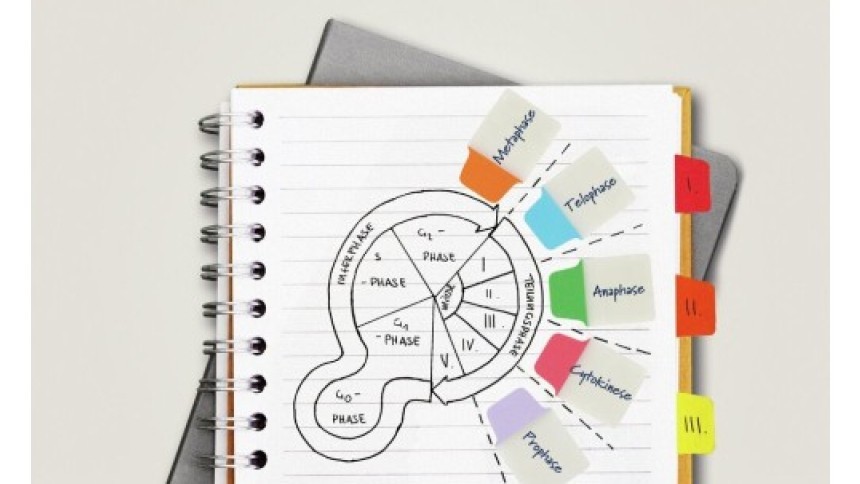 Metaphase
Telophase
Anaphase
Cytokinese
Prophase
INTERPHASE
G₂-
PHASE
S
-PHASE
G₁
-PHASE
G₀-
PHASE
TEILUNGSPHASE
I
II.
III.
IV.
V.
I.
II.
III.